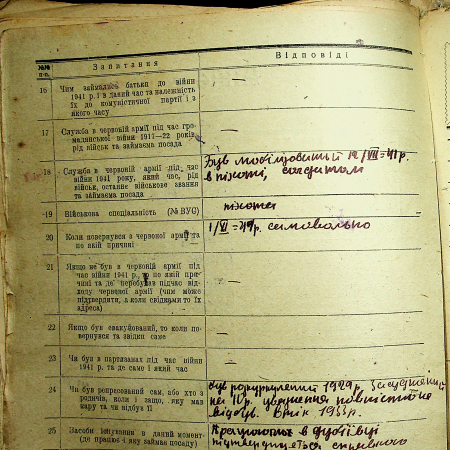 №№ п.п.
Запитання
Відповіді
16
Чим займались батьки до війни
1941 р. і в даний час та належність
їх до комуністичної партії і з
якого часу
17
Служба в червоній армії під час гро-
мадянської війни 1917—22 років,
рід військ та займаєма посада
18
Служба в червоній армії під час
війни 1941 року, який час, рід
військ, останнє військове звання
та займаєма посада
Був мобілізований 12/VII=41 р.
в піхоті, солдатом
19
Військова спеціяльність (№ ВУС)
піхота
20
Коли повернувся з червоної армії та
по якій причині
самовольно
21
Якщо не був в червоній армії під
час війни 1941 р. то по якій при-
чині та де перебував підчас від-
ходу червоної армії (чим може
підтвердити, а коли свідками то їх
адреса)
22
Якщо був евакуйований, то коли по-
вернувся та звідки саме
23
Чи був в партизанах під час війни
1941 р. та де саме і який час
24
Чи був репресований сам, або хто з
родичів, коли і защо, яку мав
кару та чи відбув її
Був розкуркулений 1929 р. Засуджений
на 10 р.
1933 р.
25
Засоби існування в даний момент
(де працює і яку займає посаду)